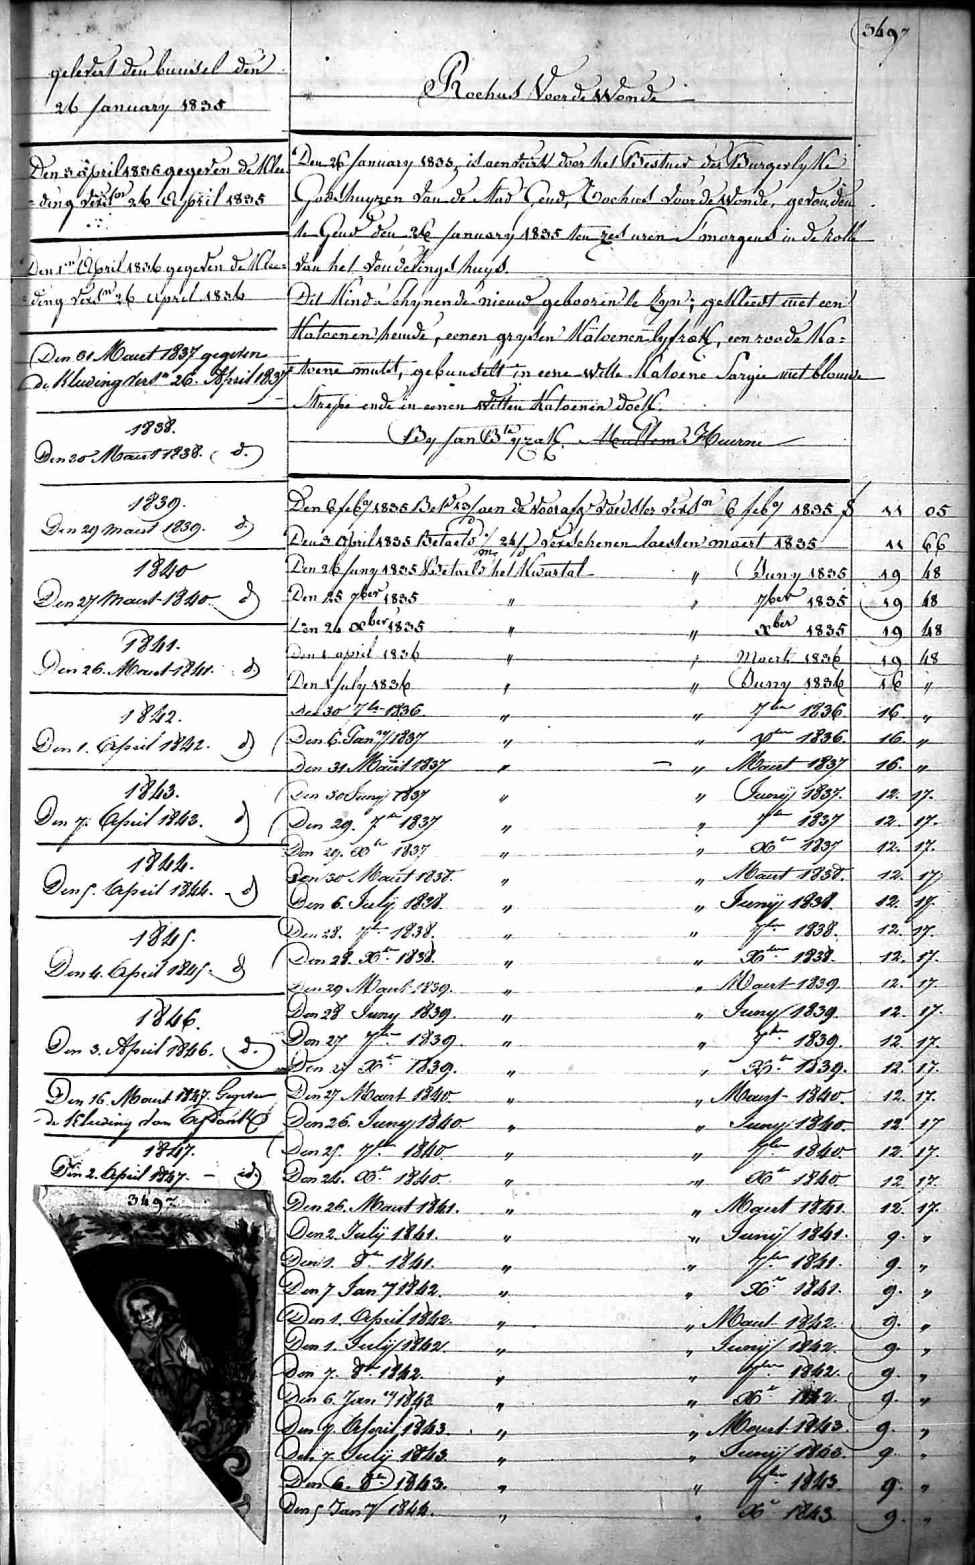 3497
gelevert den bunsel den
26 January 1835
Den 3 april 1835 gegeven de Klee-
-ding versn 26 April 1835
Den 1n April 1836 gegeven de Klee-
ding versn 26 April 1836
Den 31 Maert 1837 gegeven
de Kleeding versn 26. April 1837
1838.
Den 30 Maert 1838. d.
1839.
Den 29 maert 1839. d
1840
Den 27 Maert 1840. d
1841.
Den 26. Maert 1841. d
1842.
Den 1. April 1842. d
1843.
Den 7. April 1843. d
1844.
Den 5. April 1844. - d
1845.
Den 4. April 1845. d
1846.
Den 3. April 1846. d.
Den 16. Maert 1847. Gegeven
de Kleeding
1847.
Den 2. April 1847. - d.
3497
Rochus Voordewonde
Den 26 January 1835, is aenveird door het Bestuer der Burgerlyke
Godshuyzen van de stad Gend, Rochus Voordewonde, gevonden
te Gend den 26 January 1835 ten zes uren s'morgens in de rolle
van het vondelingshuys.
Dit Kind schynende nieuw gebooren te zyn; gekleedt met een
Katoenen hemde, eenen gryzen Katoenen lyfrok, een roode Ka=
toene muts, gebunselt in eene witte Katoene Sargie met blauwe
Strepe ende in eenen witten Katoenen doek.
By Jan Bte
Den 6 feby 1835 Bet de voorafgr voedster versn 6 feby 1835 f 11 05
Den 3 April 1835 Betaeld verschenen laesten maert 1835 11 66
Den 26 Juny 1835 Betaeld het Kwartal " Juny 1835 19 48
Den 25 7ber 1835 " " 7ber 1835 19 48
Den 24 xber 1835 " " xber 1835 19 48
Den 1 april 1836 " " Maert 1836 19 48
Den 1 July 1836 " " Juny 1836 16 "
Den 30 7ber 1836. " " 7ber 1836 16. "
Den 6. Jany 1837 " " Xber 1836. 16. "
Den 31. Maert 1837 " — " Maert 1837 16. "
Den 30 Junij 1837 " " Junij 1837. 12. 17.
Den 29. 7br 1837 " " 7br 1837 12. 17.
Den 29. Xbr 1837 " " Xbr 1837 12. 17.
Den 30 Maert 1838. " " Maert 1838. 12. 17
Den 6. Julij 1838. " " Junij 1838. 12. 17.
Den 28. 7br 1838. " " 7ber 1838. 12. 17.
Den 28. Xbr 1838. " " Xber 1838. 12. 17.
Den 29 Maert 1839. " " Maert 1839. 12. 17
Den 28 Juny 1839. " " Juny 1839. 12. 17.
Den 27 7ber 1839. " " 7br 1839. 12. 17.
Den 27 Xbr 1839. " " Xbr 1839. 12. 17.
Den 27 Maert 1840 " " Maert 1840. 12. 17.
Den 26. Juny 1840 " " Juny 1840. 12. 17
Den 25. 7ber 1840 " " 7ber 1840 12. 17.
Den 24. Xbr 1840. " " Xbr 1840 12 17.
Den 26. Maert 1841. " " Maert 1841. 12. 17.
Den 2. Julij 1841. " " Junij 1841. 9. "
Den 1. 8br 1841. " " 7ber 1841. 9. "
Den 7 Jany 1842. " " Xbr 1841. 9. "
Den 1. April 1842. " " Maert 1842. 9. "
Den 1. Julij 1842. " " Junij 1842. 9. "
Den 7. 8br 1842. " " 7ber 1842. 9. "
Den 6. Jany 1843 " " Xbr 1842. 9. "
Den 7. April 1843. " " Maert 1843. 9. "
Den 7. Julij 1843. " " Junij 1843. 9. "
Den 6. 8br 1843. " " 7ber 1843. 9. "
Den 5 Jany 1844. " " Xbr 1843 9. "